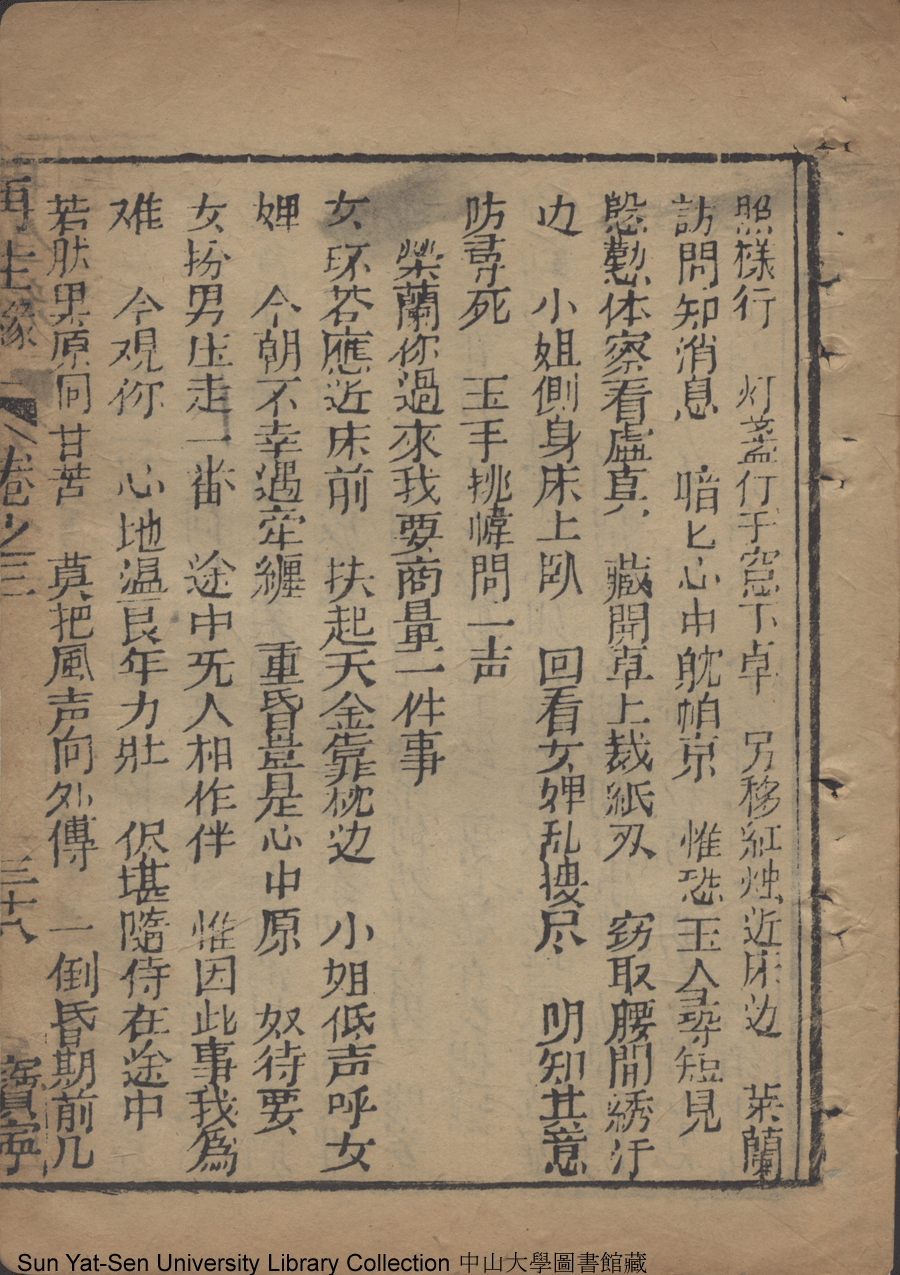 照樣行　灯盖行于窓下卓　另移紅烛近床边　荣蘭
訪問知消息　暗匕心中躭帕京　惟恐玉人尋短見
慇懃体察看虚真　藏開卓上裁紙刄　窃取腰間綉汗
边　小姐側身床上卧　回看女婢乱搜尽　明知其意
防尋死　玉手挑幃問一声
榮蘭你過來我要商量一件事
女环答應近床前　扶起天金靠枕边　小姐低声呼女
婢　今朝不幸遇牵纏　重昏豈是心中原　奴待要
女扮男庄走一番　途中旡人相作伴　惟因此事我為
难　今观你　心地温良年力壯　伬堪隨侍在途中
若肰果原同甘苦　莫把風声向外傳　一倒昏期前几
再生緣　卷之三　三十八　寳寧
Sun Yat-Sen University Library Collection 中山大學圖書館藏